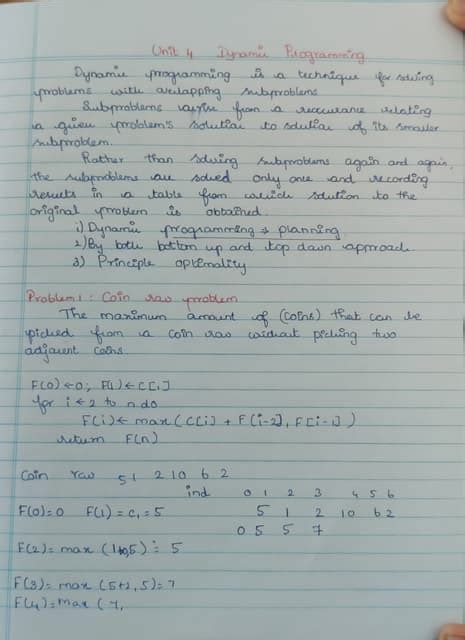 Unit 4 Dynamic Programming
Dynamic programming is a technique for solving
problems with overlapping subproblems
Subproblems arise from a reccurance relating
a given problem's solution to solution of its smaller
subproblem.
Rather than solving subproblems again and again,
the subproblems are solved only once and recording
results in a table from which solution to the
original problem is obtained.
1) Dynamic programming → planning
2) By both bottom up and top down approach.
3) Principle optimality
Problem 1 : Coin row problem
The maximum amount of (coins) that can be
picked from a coin row without picking two
adjacent coins.
F(0) ← 0; F(1) ← C[1]
for i ← 2 to n do
F(i) ← max (C[i] + F[i-2], F[i-1])
return F(n)
Coin row 5 1 2 10 6 2
ind 0 1 2 3 4 5 6
F(0)=0 F(1) = C1 = 5 5 1 2 10 6 2
0 5 5 7
F(2) = max (1+0,5) = 5
F(3) = max (5+2, 5) = 7
F(4) = max ( 7,